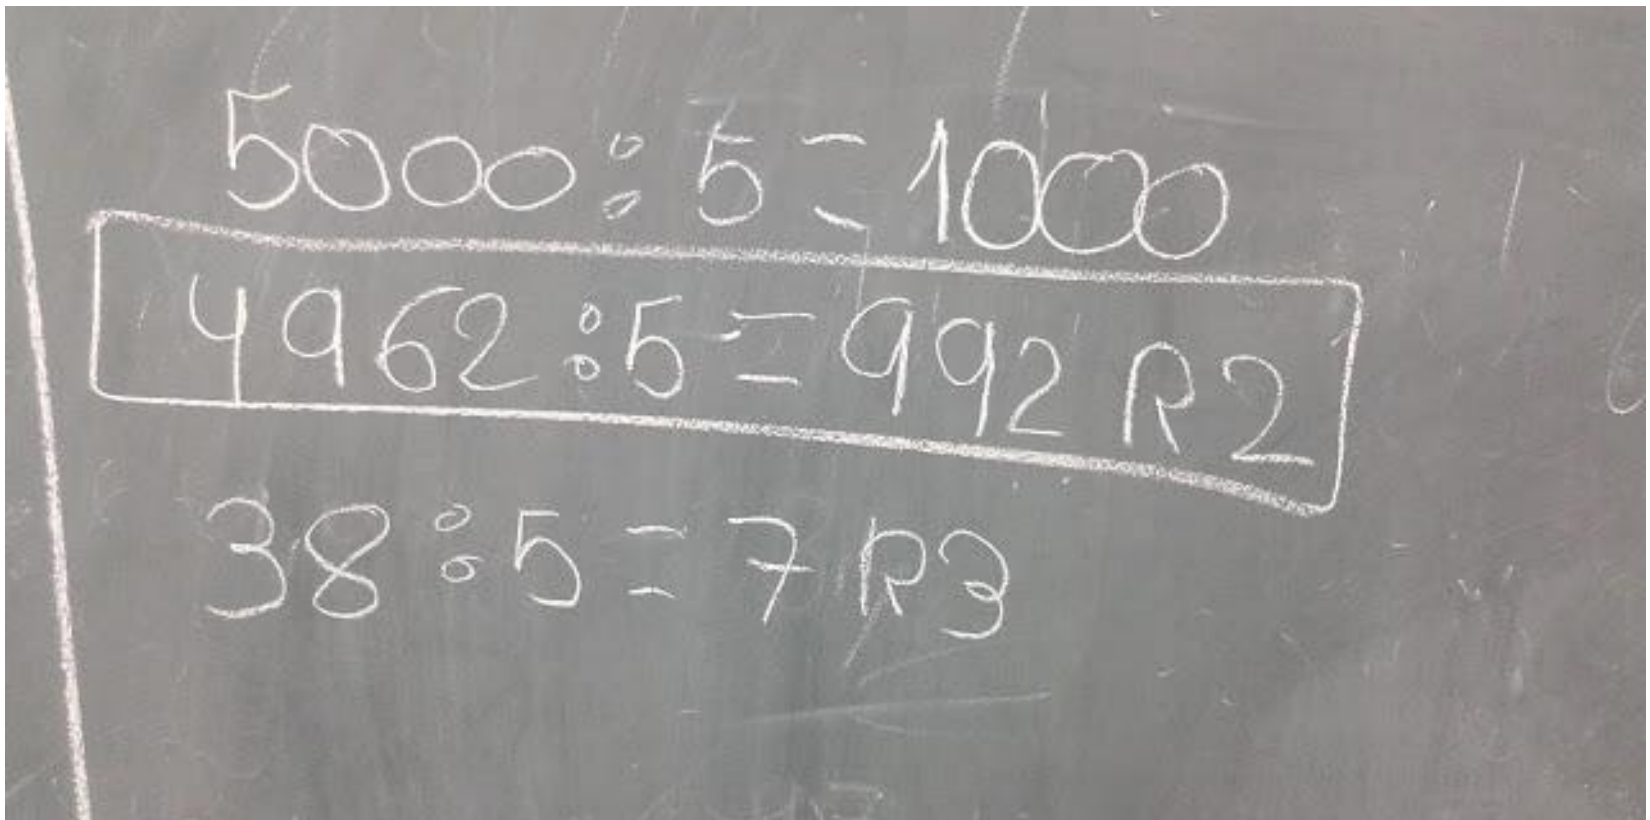 5000:5=1000
4962:5=992 R2
38:5=7 R3